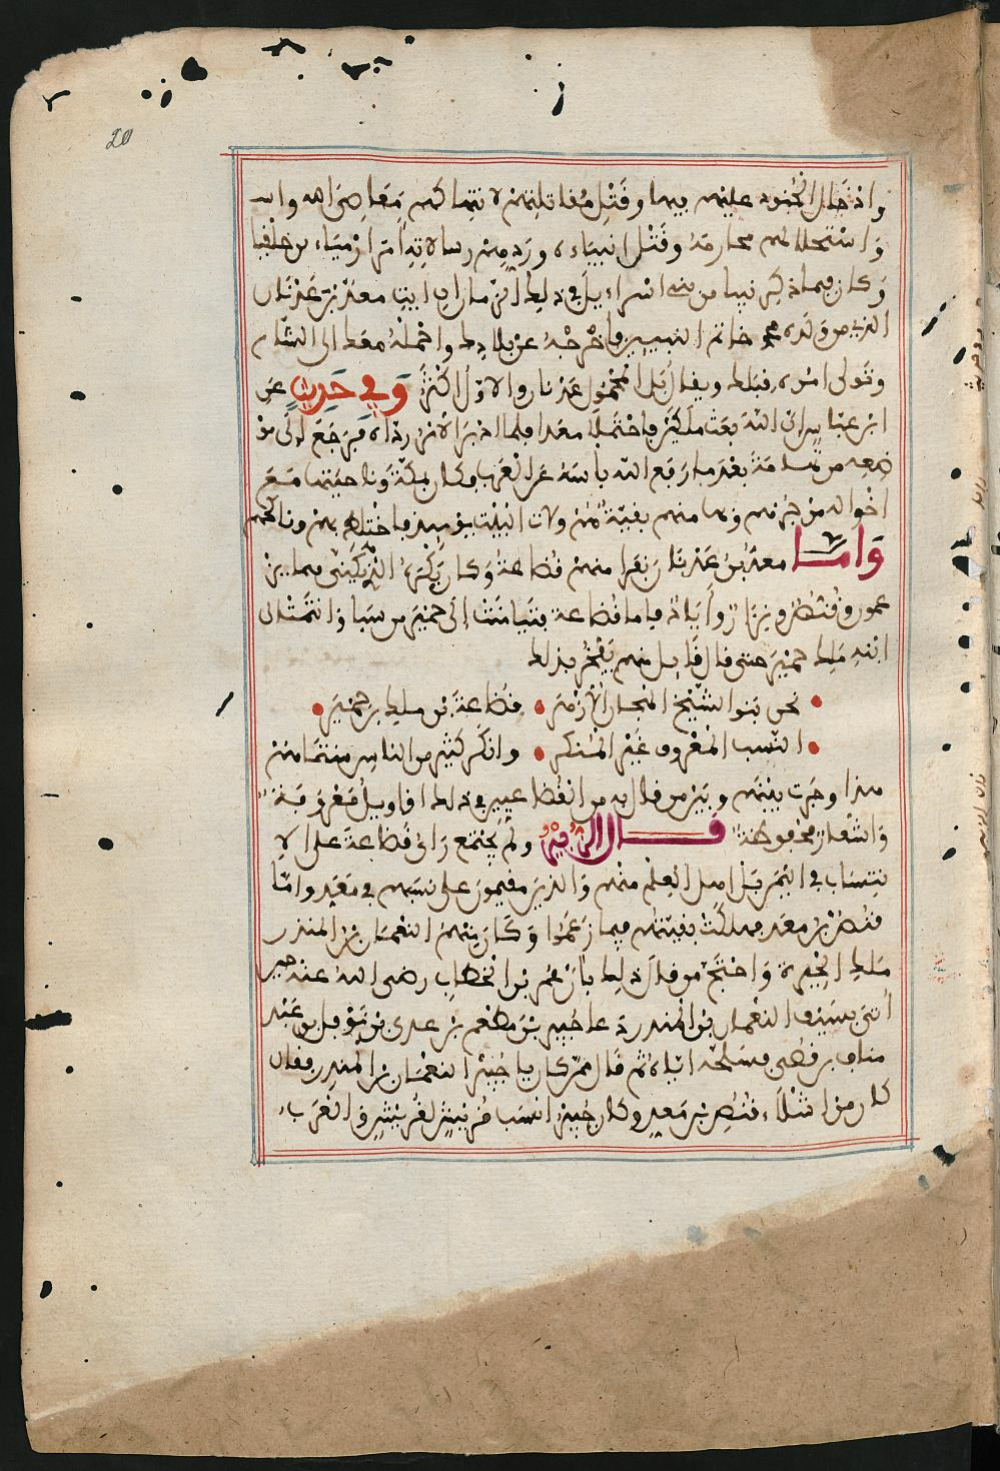 20
وادخال الجنود عليهم فيها وقتل مقاتلتهم لانتهاكهم معاصي الله واسـ
واستحلالهم محارمه وقتل انبياءه ورد من رسالاته امر ارمياء بن حلقيا
وكان فيما ذكر نبيا من بني اسراءيل في ذلك الزمان ايت معد بن عدنان
الذي من ولده محمد خاتم النبيين فاخرجه عن بلاده واحمله معك الى الشام
وتولى امره قبلك ويقال بل المحمول عدنان والاول اكثر وفي حديث عن
ابن عباس ان الله بعث ملكين فاحتملا معدا فلما ادبر الامر رداه فرجع الى مو
ضعه من تهامة بعد ما رفع الله باسه عن العرب فكان بمكة وناحيتها مع
اخواله من جرهم وبها منهم بقية هم ولات البيت يومئذ فاختلط بهم وناكحهم
واما معد بن عدنان نفرا منهم قضاعة وكان بكره الذي يكنى فيما يز
عمون وقنص ونزار واياد فاما قضاعة فتيامنت الى حمير من سبا وانتمت الى
ابنه ملك حمير حتى قال قايل منهم يفخر بذلك
نحن بنو الشيخ الهجان الازهر قضاعة بن ملك بن حمير
النسب المعروف غير المنكر وانكر كثير من الناس منتماهم
هذا وجرت بينهم وبين من قال به من القضاعيين في ذلك اقاويل معروفة
واشعار محفوظة قال ولم يجتمع راي قضاعة على الا
نتساب في اليمن بل اهل العلم منهم والدين مقيمون على نسبهم في معد واما
قنص بن معد فهلكت بقيتهم فيما زعموا وكان منهم النعمان بن المنذر
ملك الحيرة واحتج من قال ذلك بان عمر بن الخطاب رضي الله عنه حين
اتي بسيف النعمان بن المنذر دعا جبير بن مطعم بن عدي بن نوفل بن عبد
مناف بن قصي فسلحه اياه ثم قال ممن كان يا جبير النعمان بن المنذر فقال
كان من اشلاء قنص بن معد وكان جبير انسب قريش لقريش والعرب